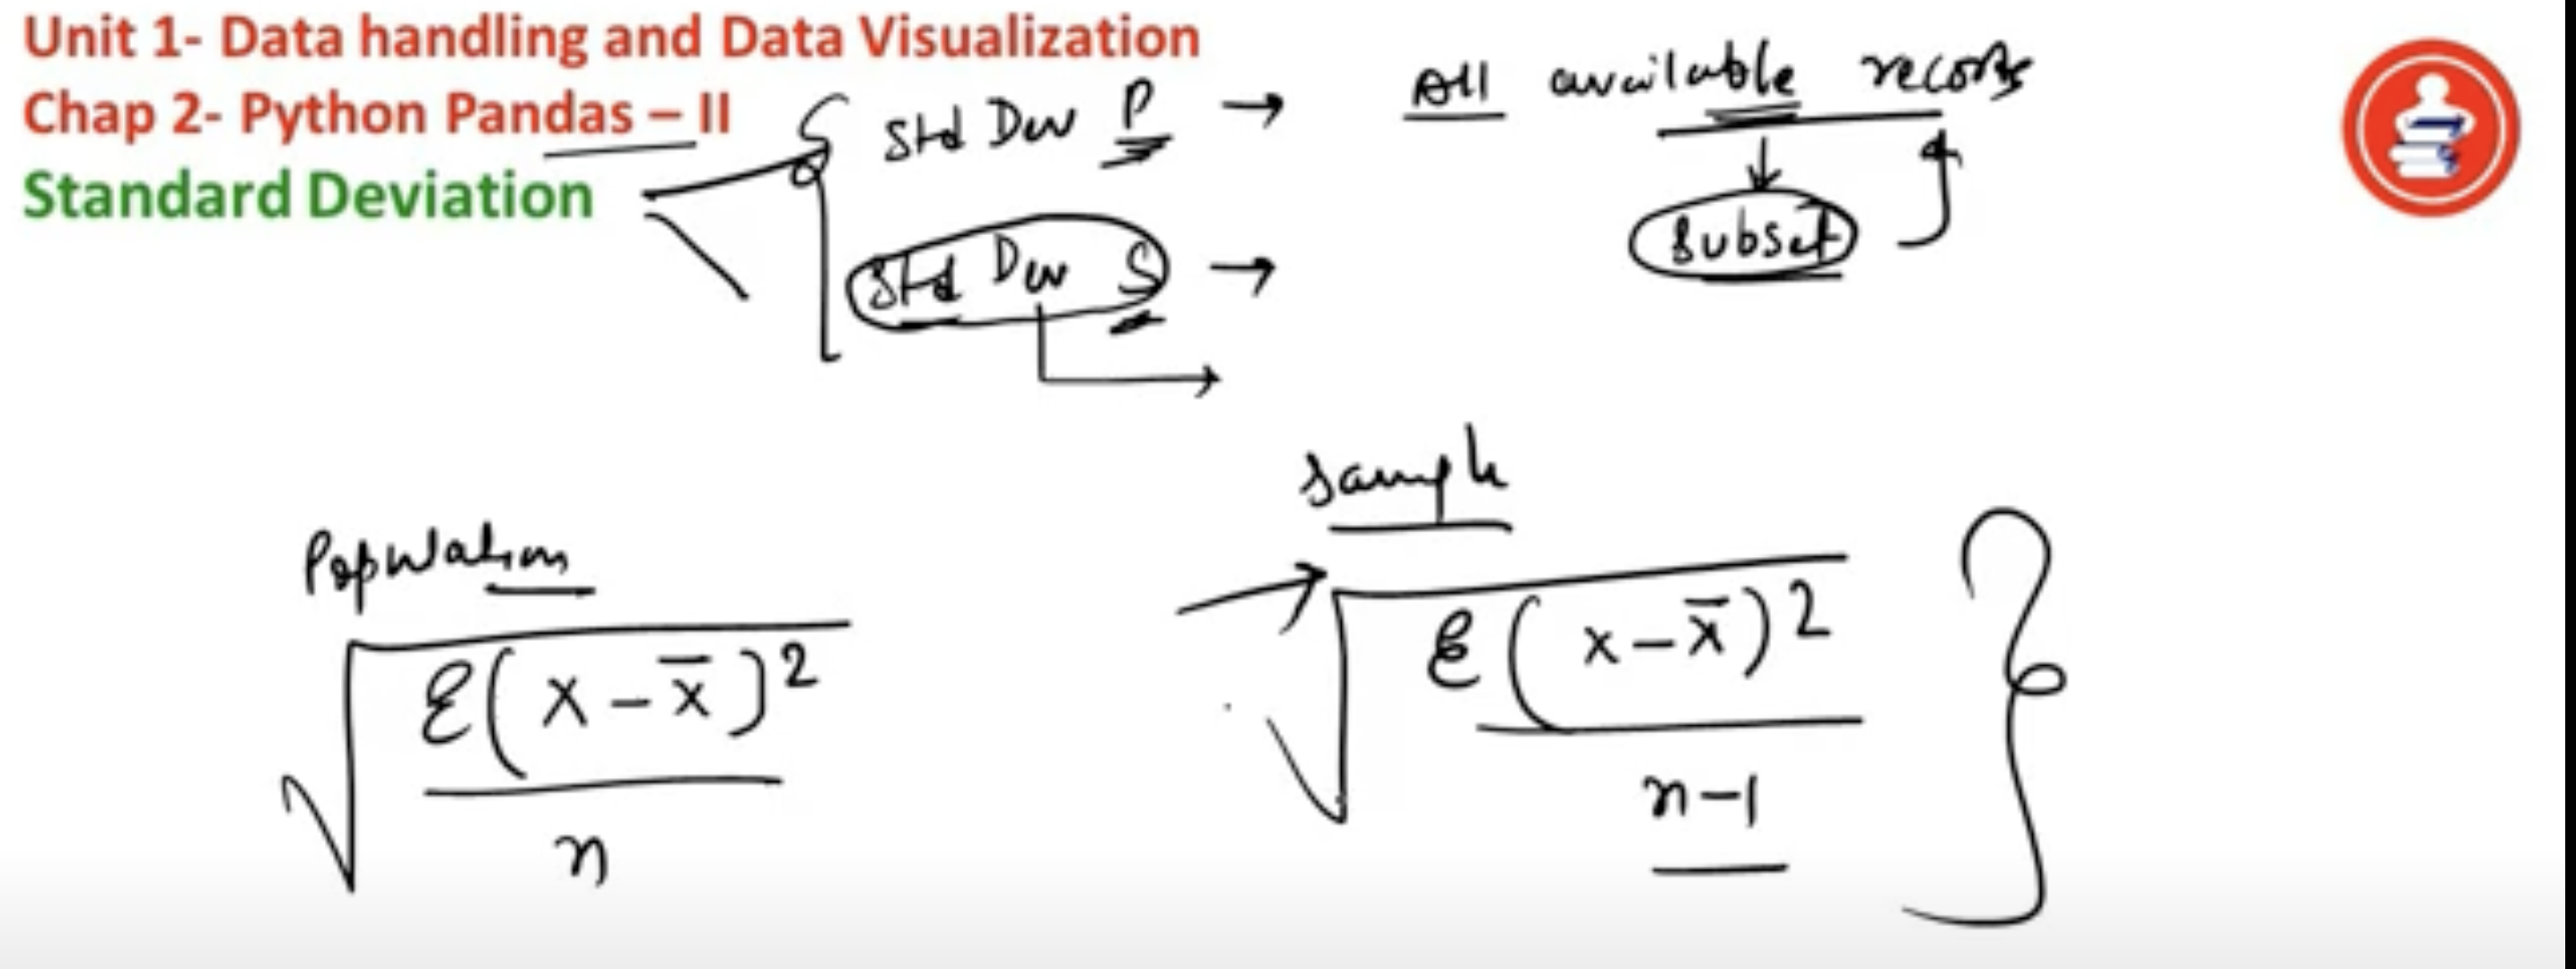 Unit 1- Data handling and Data Visualization
Chap 2- Python Pandas – II
Standard Deviation
Std Dev P → All available records
Std Dev S → Subset
Population
√ Σ(x-x̄)²
n
Sample
√ Σ(x-x̄)²
n-1